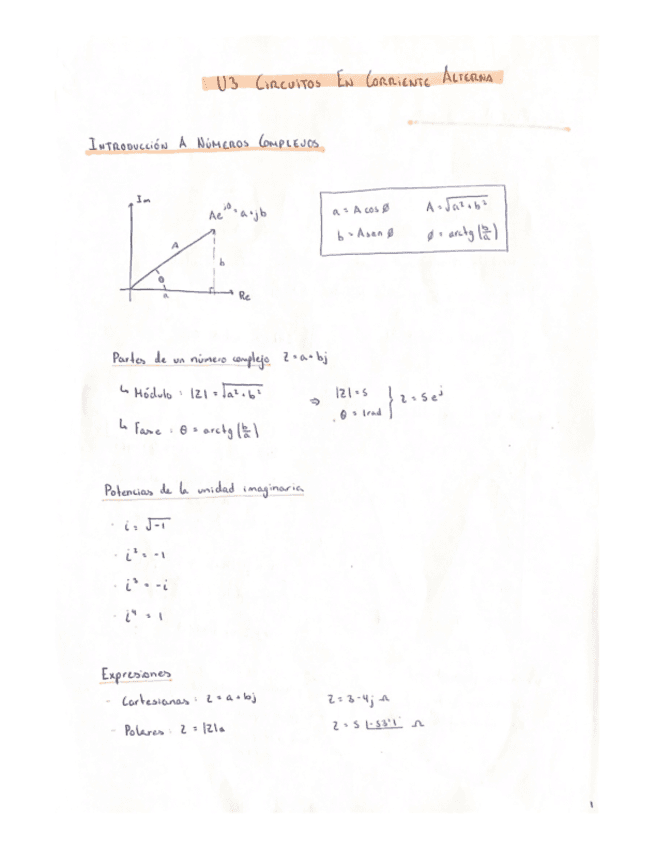 U3 CIRCUITOS EN CORRIENTE ALTERNA
INTRODUCCIÓN A NÚMEROS COMPLEJOS
Im
Ae^jθ = a+jb
A
b
θ
a
Re
a = A cos ø A = √a²+b²
b = A sen ø ø = arctg (b/a)
Partes de un número complejo z = a+bj
↳ Módulo : |z| = √a²+b² ⇒ |z| = 5 } z = 5 e^j
↳ Fase : θ = arctg (b/a) θ = 1rad
Potencias de la unidad imaginaria
· i = √-1
· i² = -1
· i³ = -i
· i⁴ = 1
Expresiones
- Cartesianas : z = a+bj z = 3-4j Ω
- Polares : z = |z|α z = 5 |-53'1 Ω
1